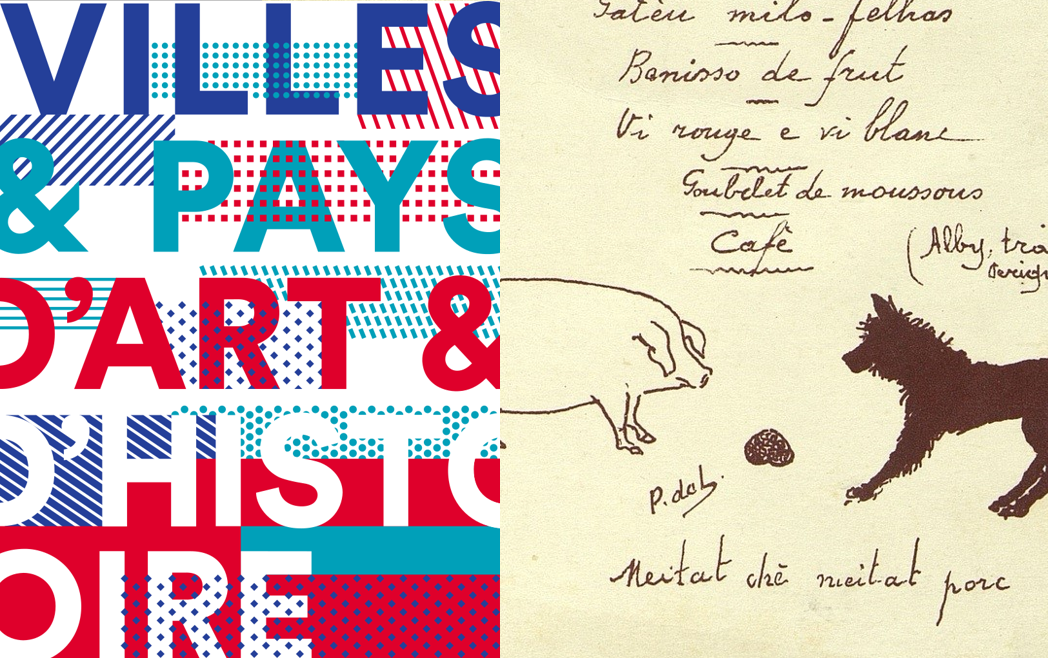 VILLES
& PAYS
D'ART &
D'HISTO
OIRE
Gatèu milo-felhas
Banisso de frut
Vi rouge e vi blanc
Goubelet de moussous
Cafè
(Alby, trò
P. dch.
Meitat chè meitat porc